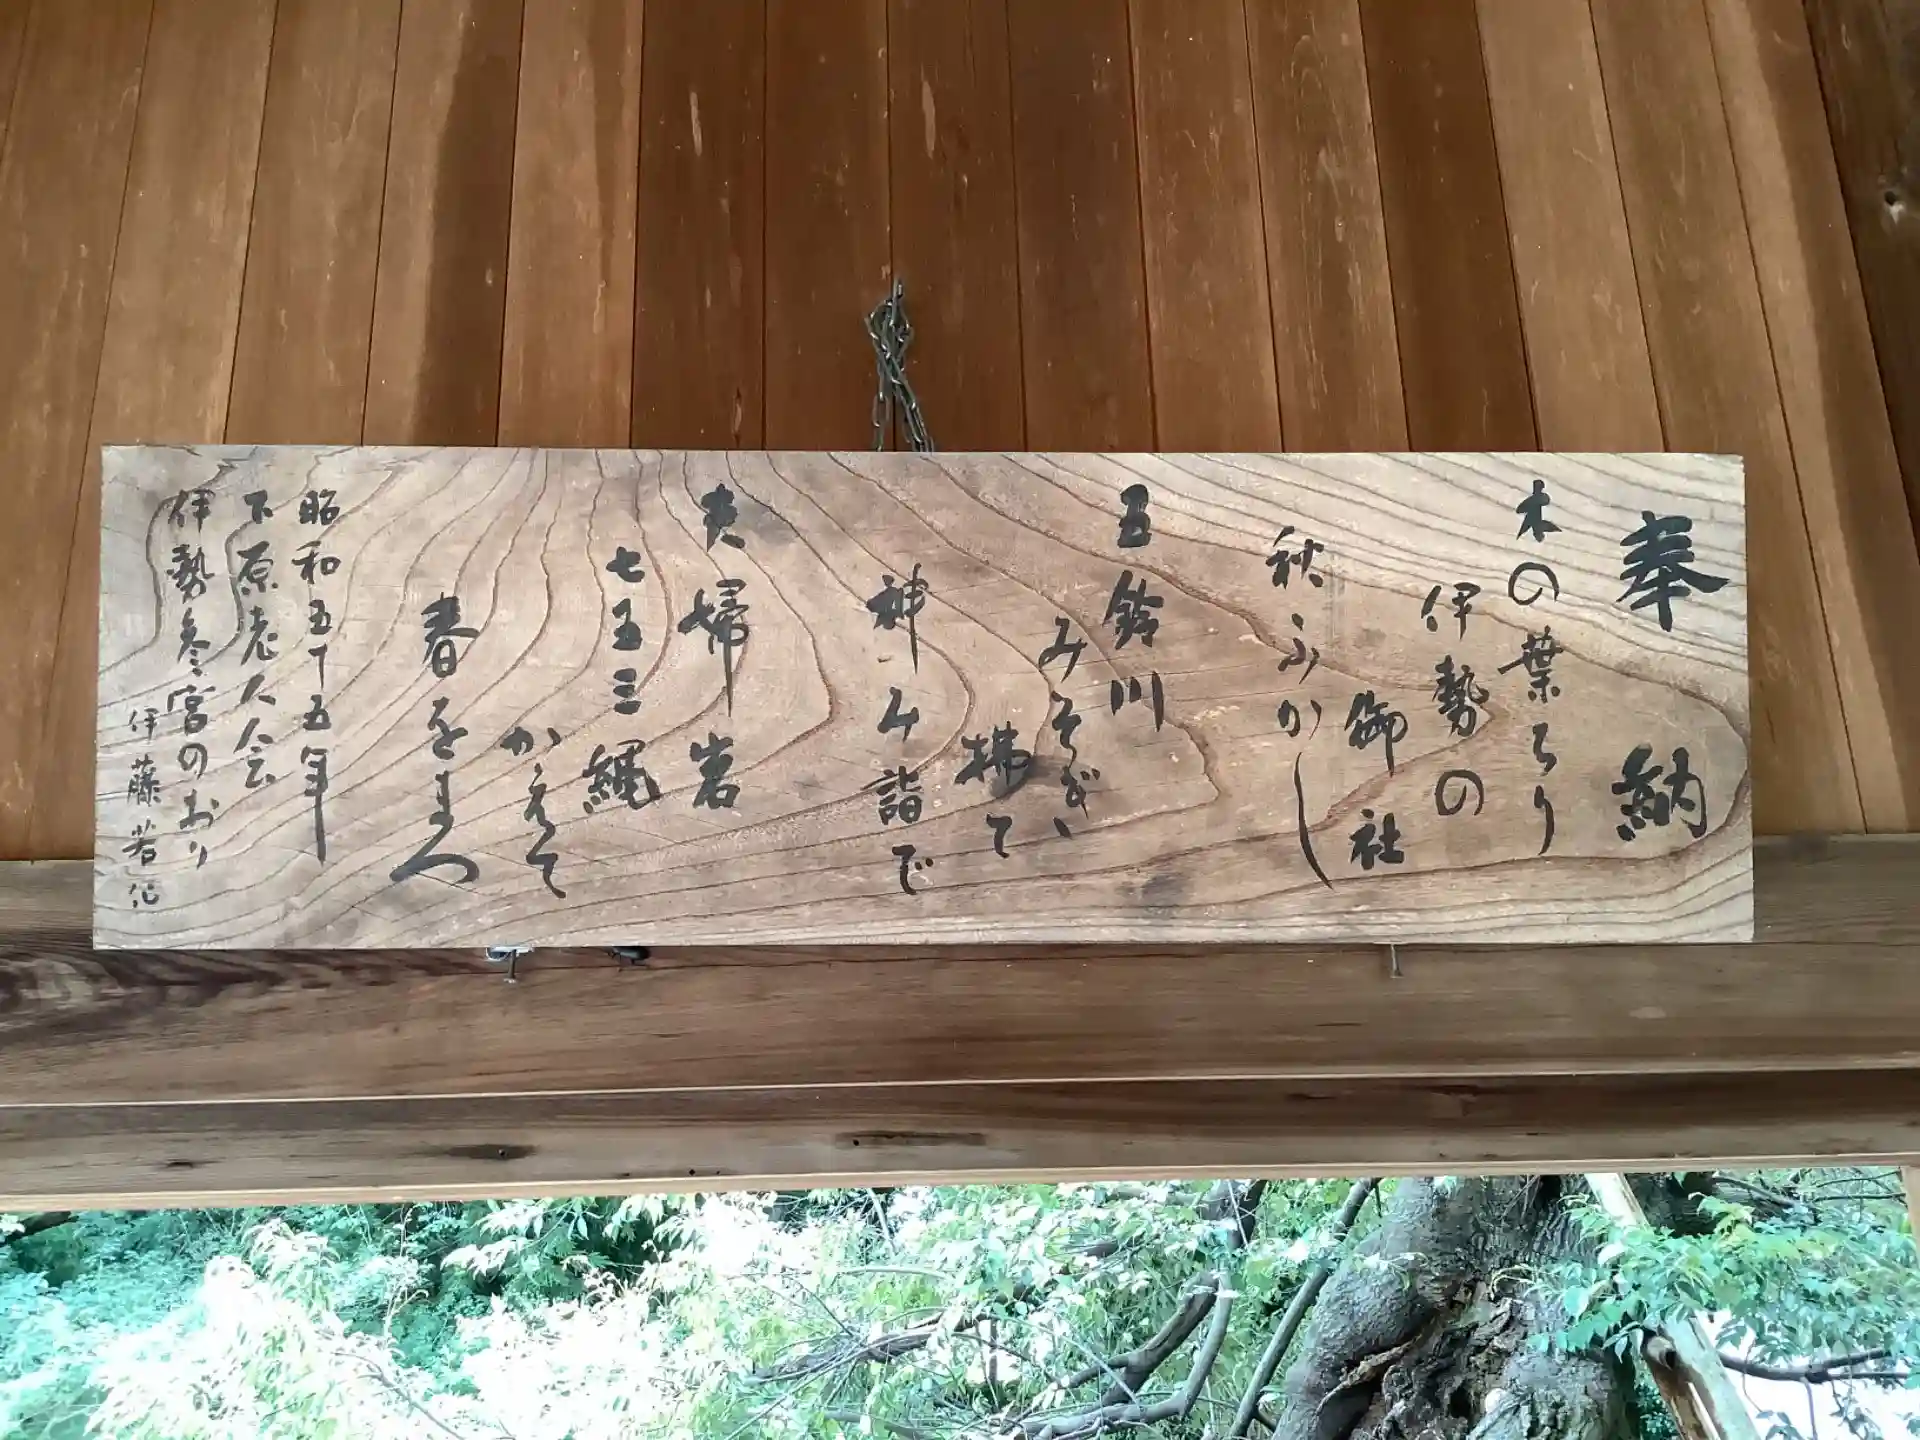 奉納
木の葉ちり
伊勢の
御社
秋ふかし
五鈴川
みそぎ
拂て
神詣で
夫婦岩
七五三縄
かえて
春をまつ
昭和五十五年
下原老人会
伊勢参宮のおり
伊藤若